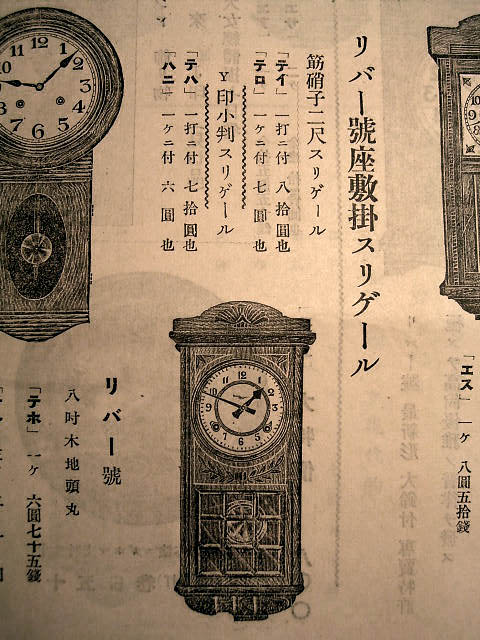 リバー號座敷掛スリゲール
筋硝子二尺スリゲール
「テイ」 一打ニ付 八拾圓也
「テロ」 一ケニ付 七圓也
Y印小判スリゲール
「テハ」 一打ニ付 七拾圓也
「ハニ」 一ケニ付 六圓也
「エス」 一ケ 八圓五拾錢
リバー號
八吋木地頭丸
「テホ」 一ケ 六圓七十五錢